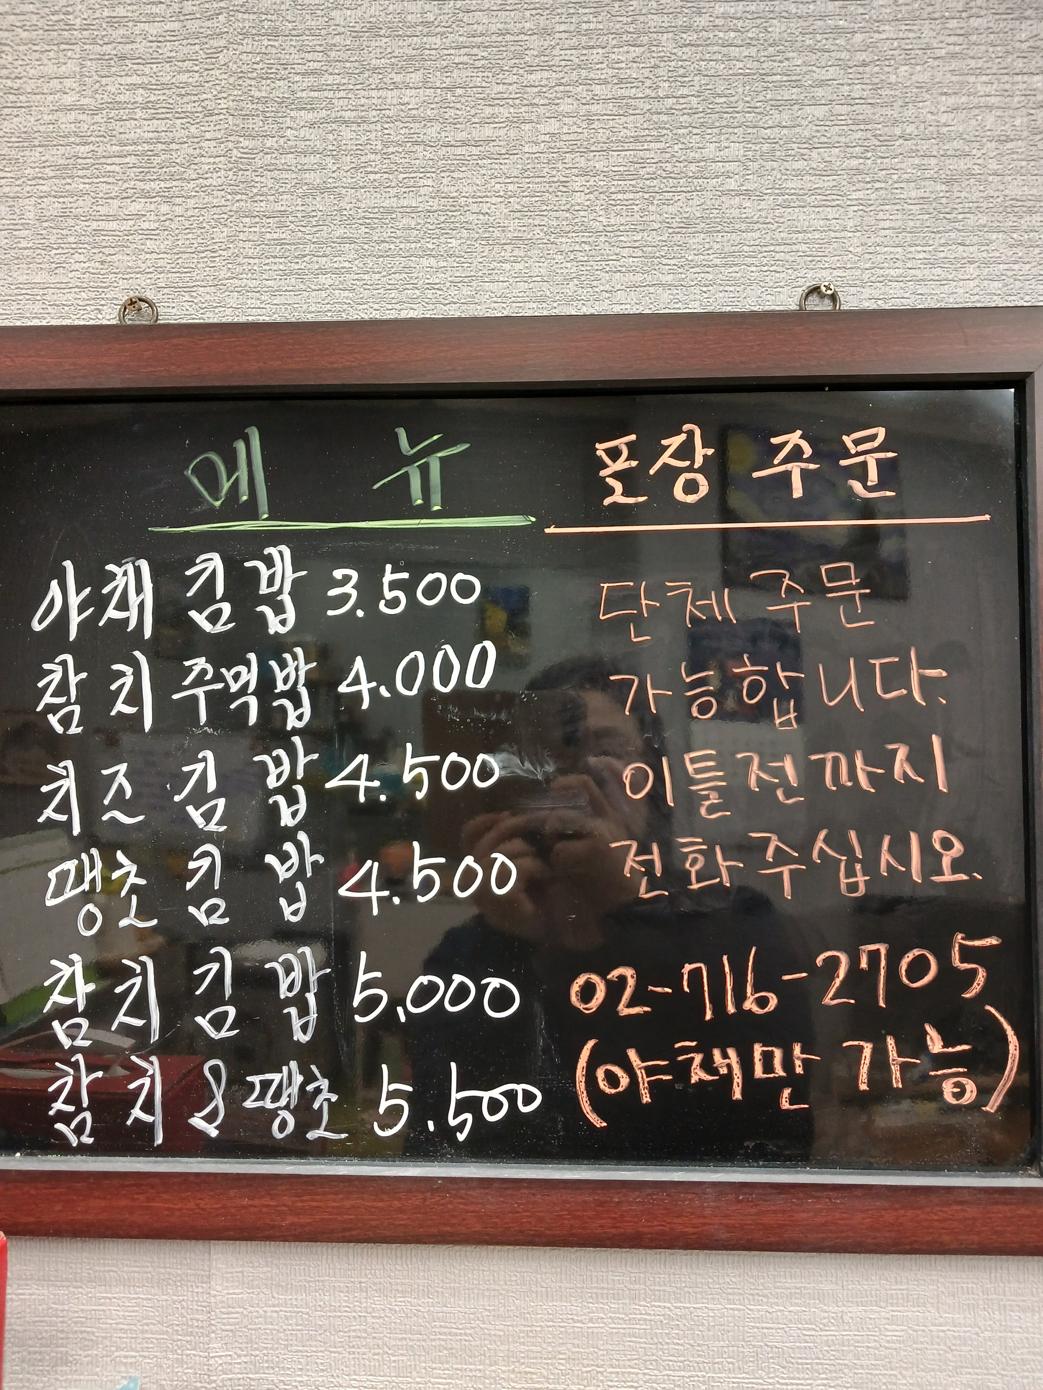 메 뉴
야채 김 밥 3.500
참 치 주먹밥 4.000
치즈 김 밥 4.500
땡초 김 밥 4.500
참 치 김 밥 5,000
참 치 & 땡초 5.500
포장 주문
단체 주문
가능합니다.
이틀전까지
전화 주십시오.
02-716-2705
(야채만 가능)